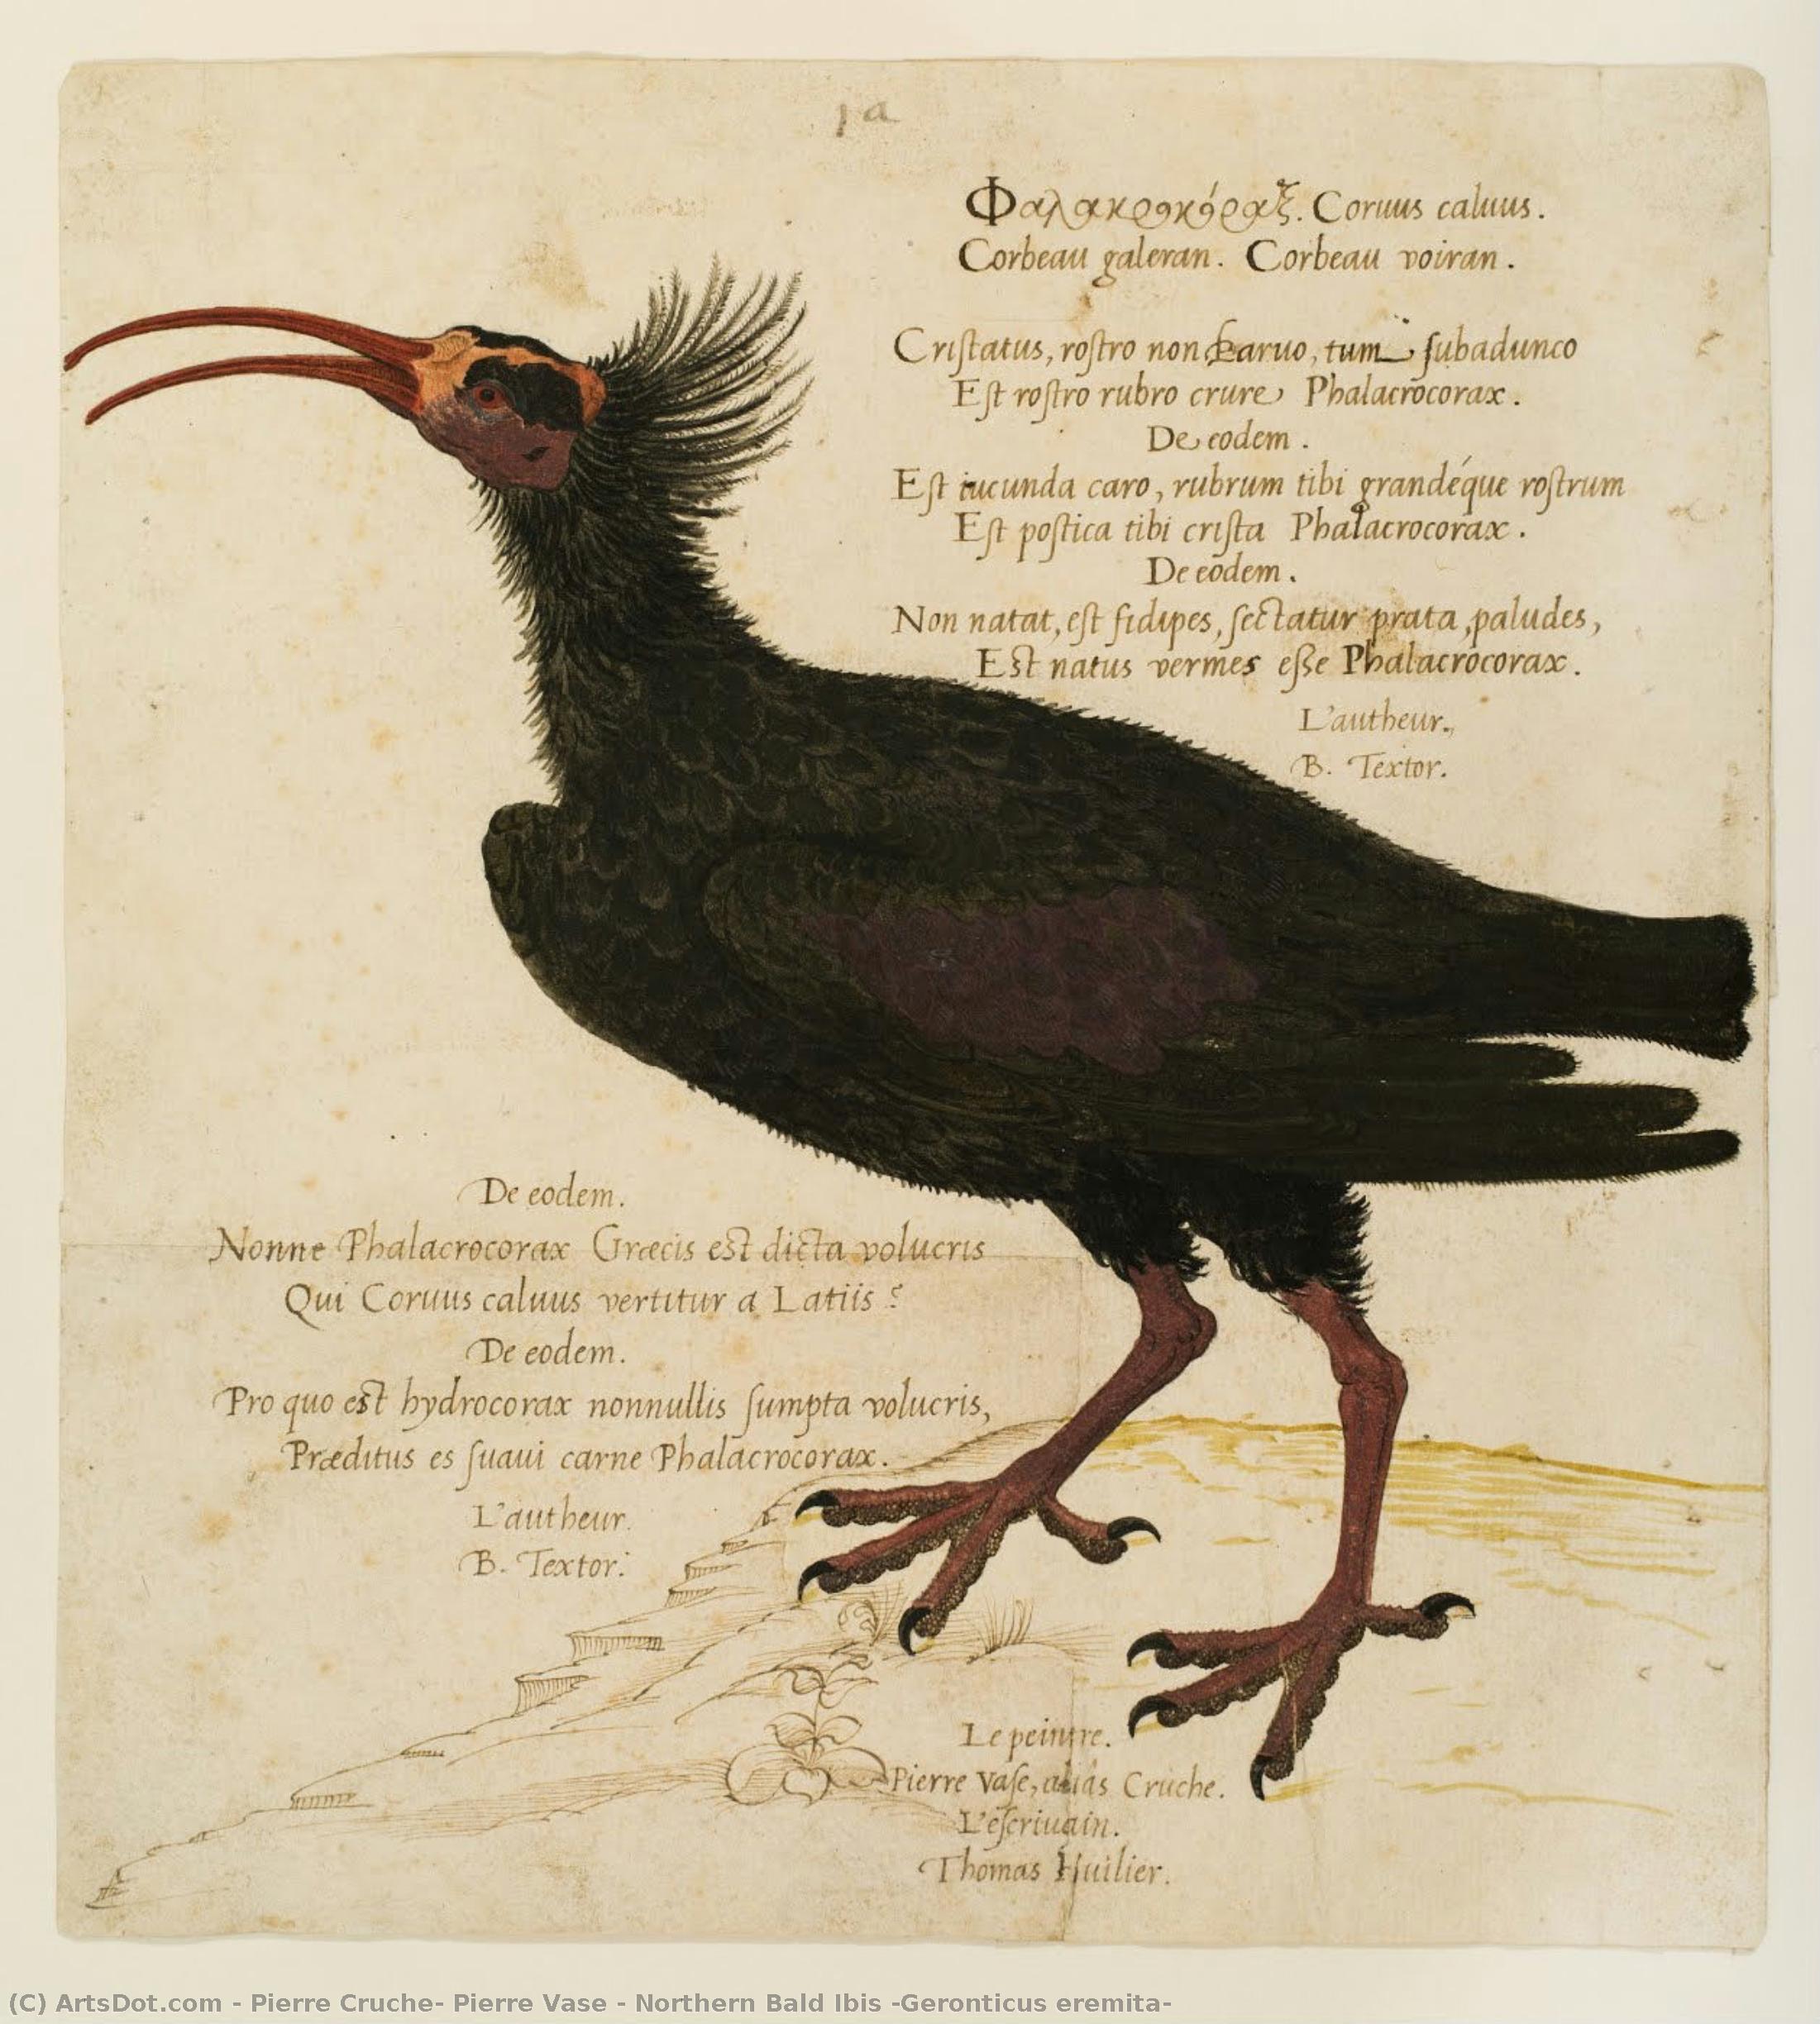 1a
Φαλακροκόραξ. Coruus caluus.
Corbeau galeran. Corbeau voiran.
Criſtatus, roſtro non paruo, tum ſubadunco
Eſt roſtro rubro crure Phalacrocorax.
De eodem.
Eſt iucunda caro, rubrum tibi grandéque roſtrum
Eſt poſtica tibi criſta Phalacrocorax.
De eodem.
Non natat, eſt fidipes, ſectatur prata, paludes,
Est natus vermes eſse Phalacrocorax.
L'autheur.
B. Textor.
De eodem.
Nonne Phalacrocorax Græcis est dicta volucris
Qui Coruus caluus vertitur a Latiis?
De eodem.
Pro quo est hydrocorax nonnullis ſumpta volucris,
Præditus es ſuaui carne Phalacrocorax.
L'autheur.
B. Textor.
Le peintre.
Pierre Vaſe, aliâs Cruche.
L'eſcriuain.
Thomas Huilier.
(C) ArtsDot.com - Pierre Cruche- Pierre Vase - Northern Bald Ibis -Geronticus eremita-